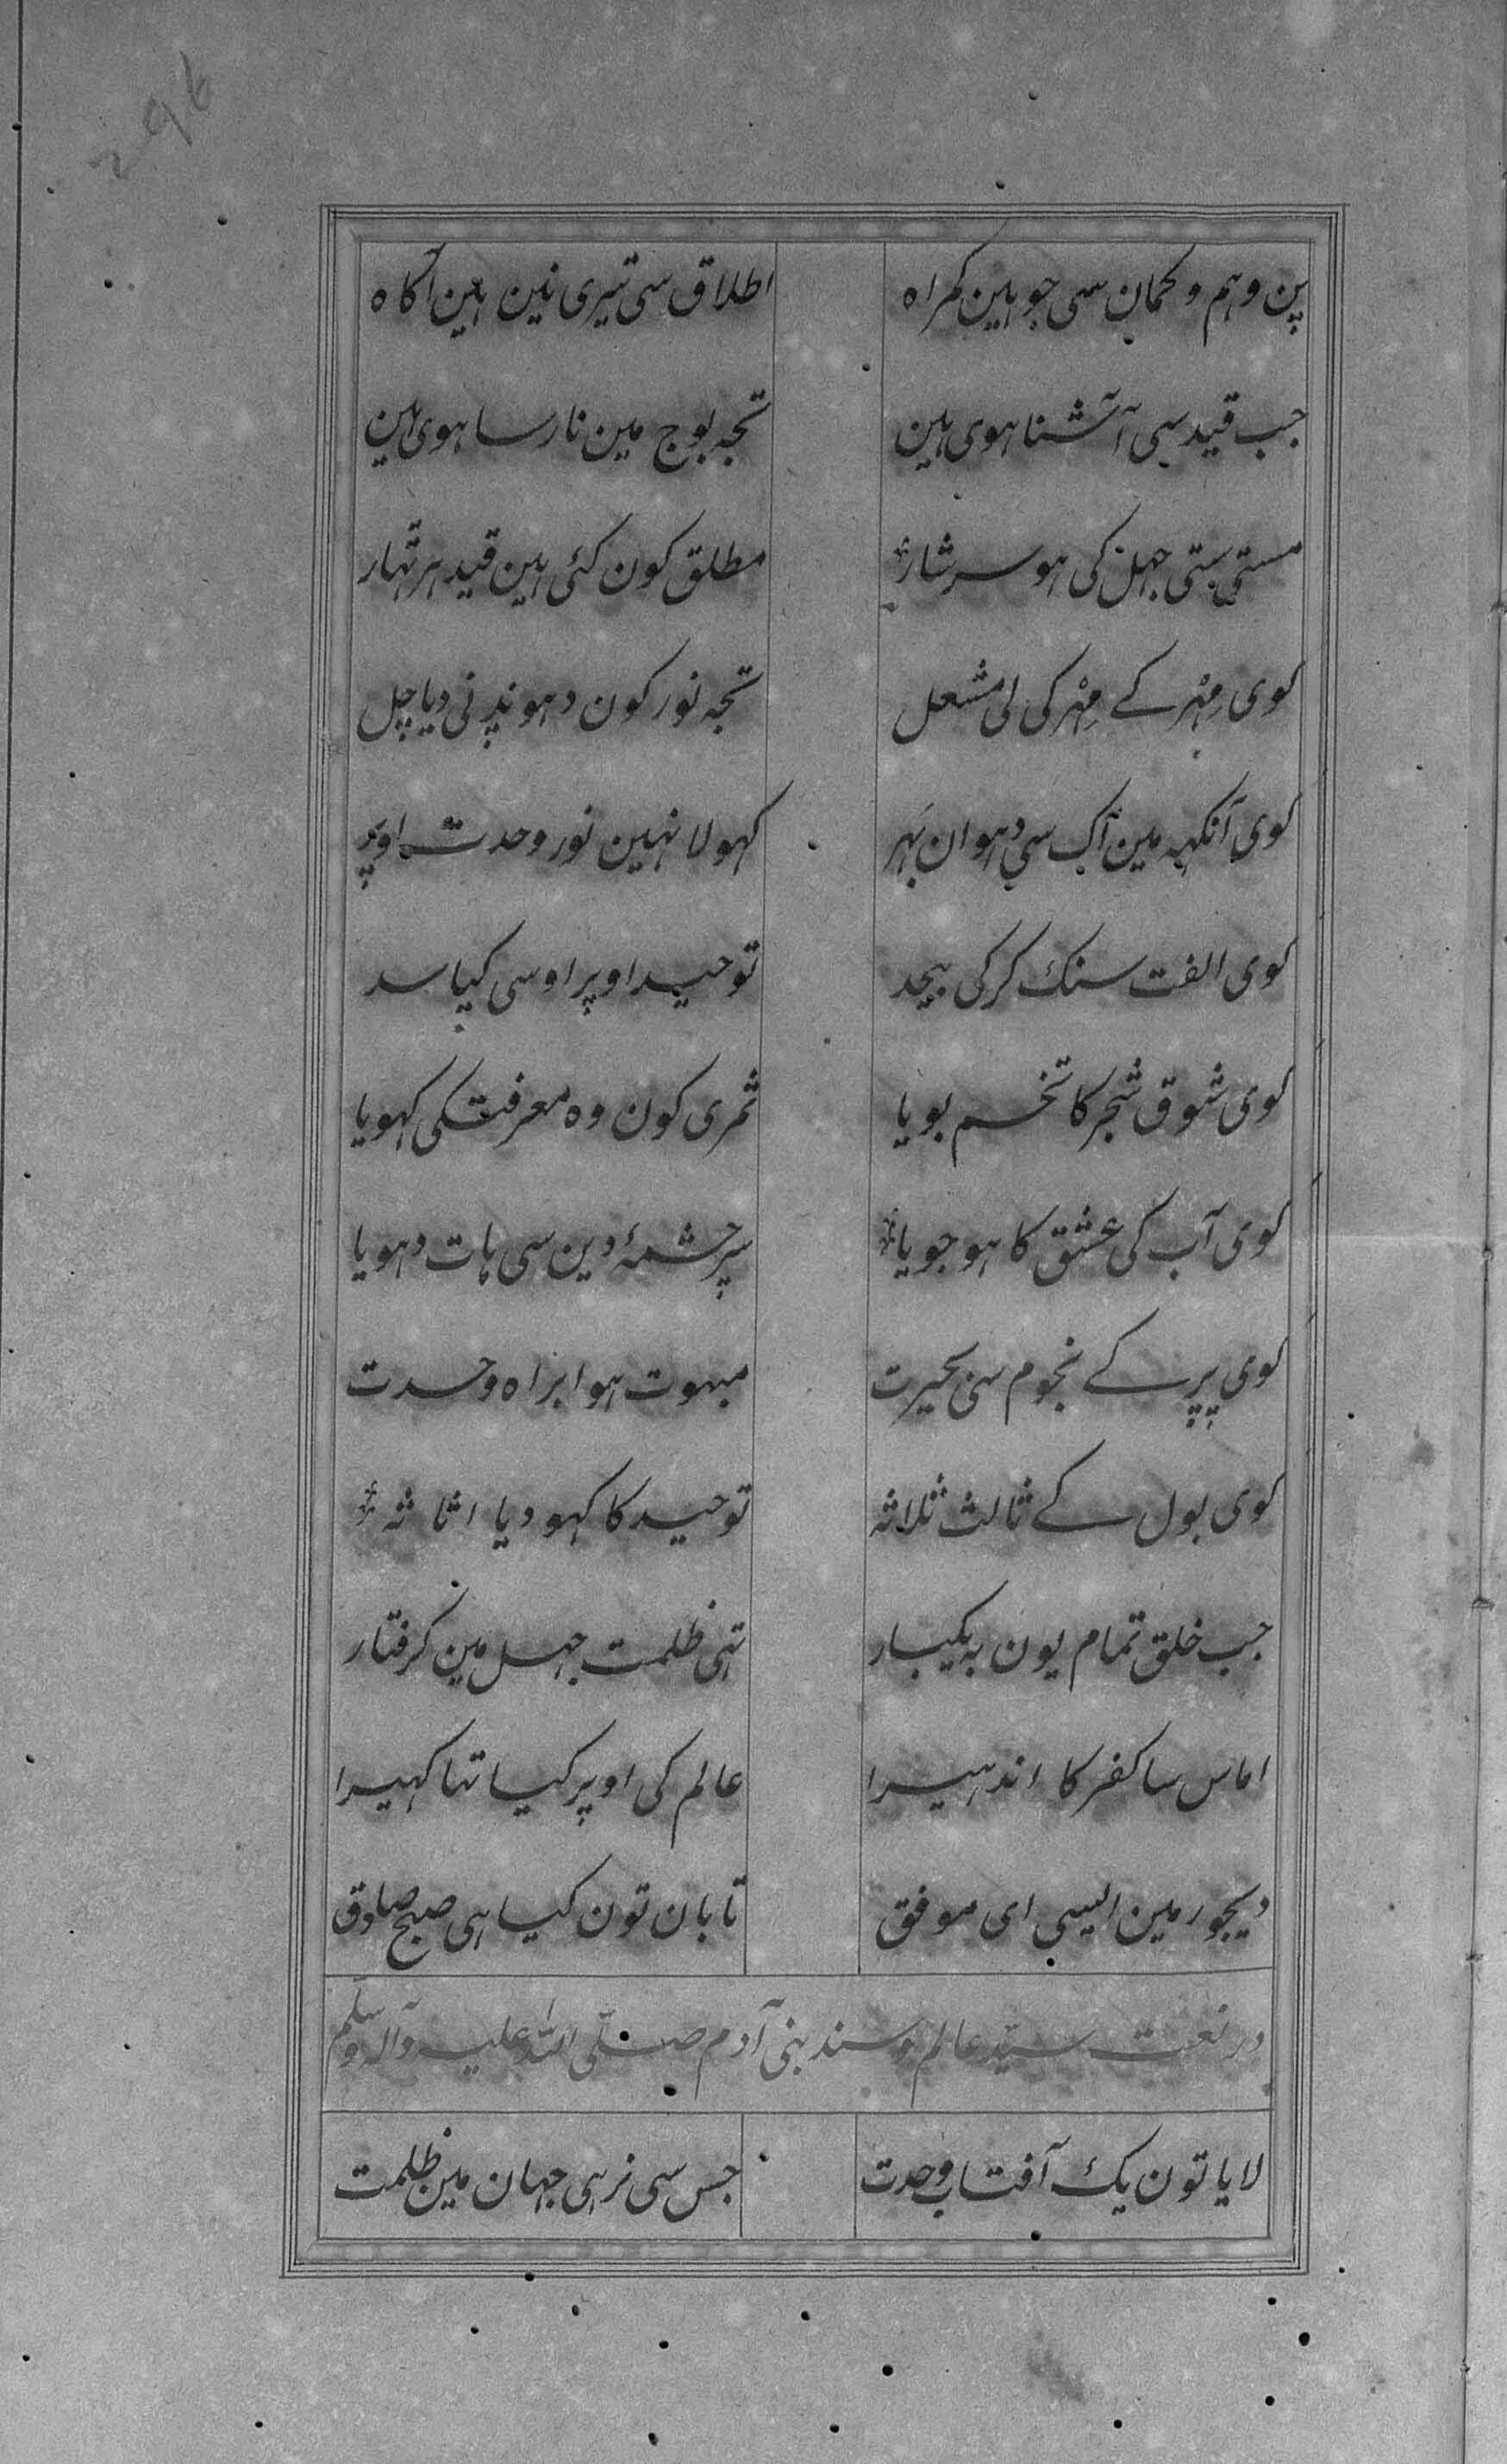 296
پن وہم و کمان سی جو ہین کمراہ اطلاق سی تیری نین ہین آکاہ
جب قید سی آشنا ہوی ہین تجہ بوج مین نارسا ہوی ہین
مستی ستی جہل کی ہو سرشار مطلق کون کئی ہین قید ہر تہار
کوی مِہْر کے مِہْر کی لی مشعل تجہ نور کون دہوندنی دیا چل
کوی آنکہہ مین آک سی دہوان بَہر کہولا نہین نور وحدت اوپر
کوی الفت سنک کرکی بیحد توحید اوپر اوسی کیا سد
کوی شوق شجر کا تخم بویا ثمری کون وہ معرفت کی کہویا
کوی آب کی عشق کا ہو جویا سرچشمۂ دین سی ہات دہویا
کوی پرپر کے نجوم سی بحیرت مبہوت ہوا براہ وحدت
کوی بول کے ثالث ثلاثہ توحید کا کہو دیا اثاثہ
جب خلق تمام یون بہ یکبار تہی ظلمت جہل مین کرفتار
اماس سا کفر کا اندہیرا عالم کی اوپر کیا تہا کہیرا
دیجور مین ایسی ای موفق تابان تون کیا ہی صبح صادق
در نعت سیّد عالم و سند بنی آدم صلّی اللہ علیہ وآلہ وسلّم
لایا تون یک آفتاب وحدت جس سی نرہی جہان مین ظلمت